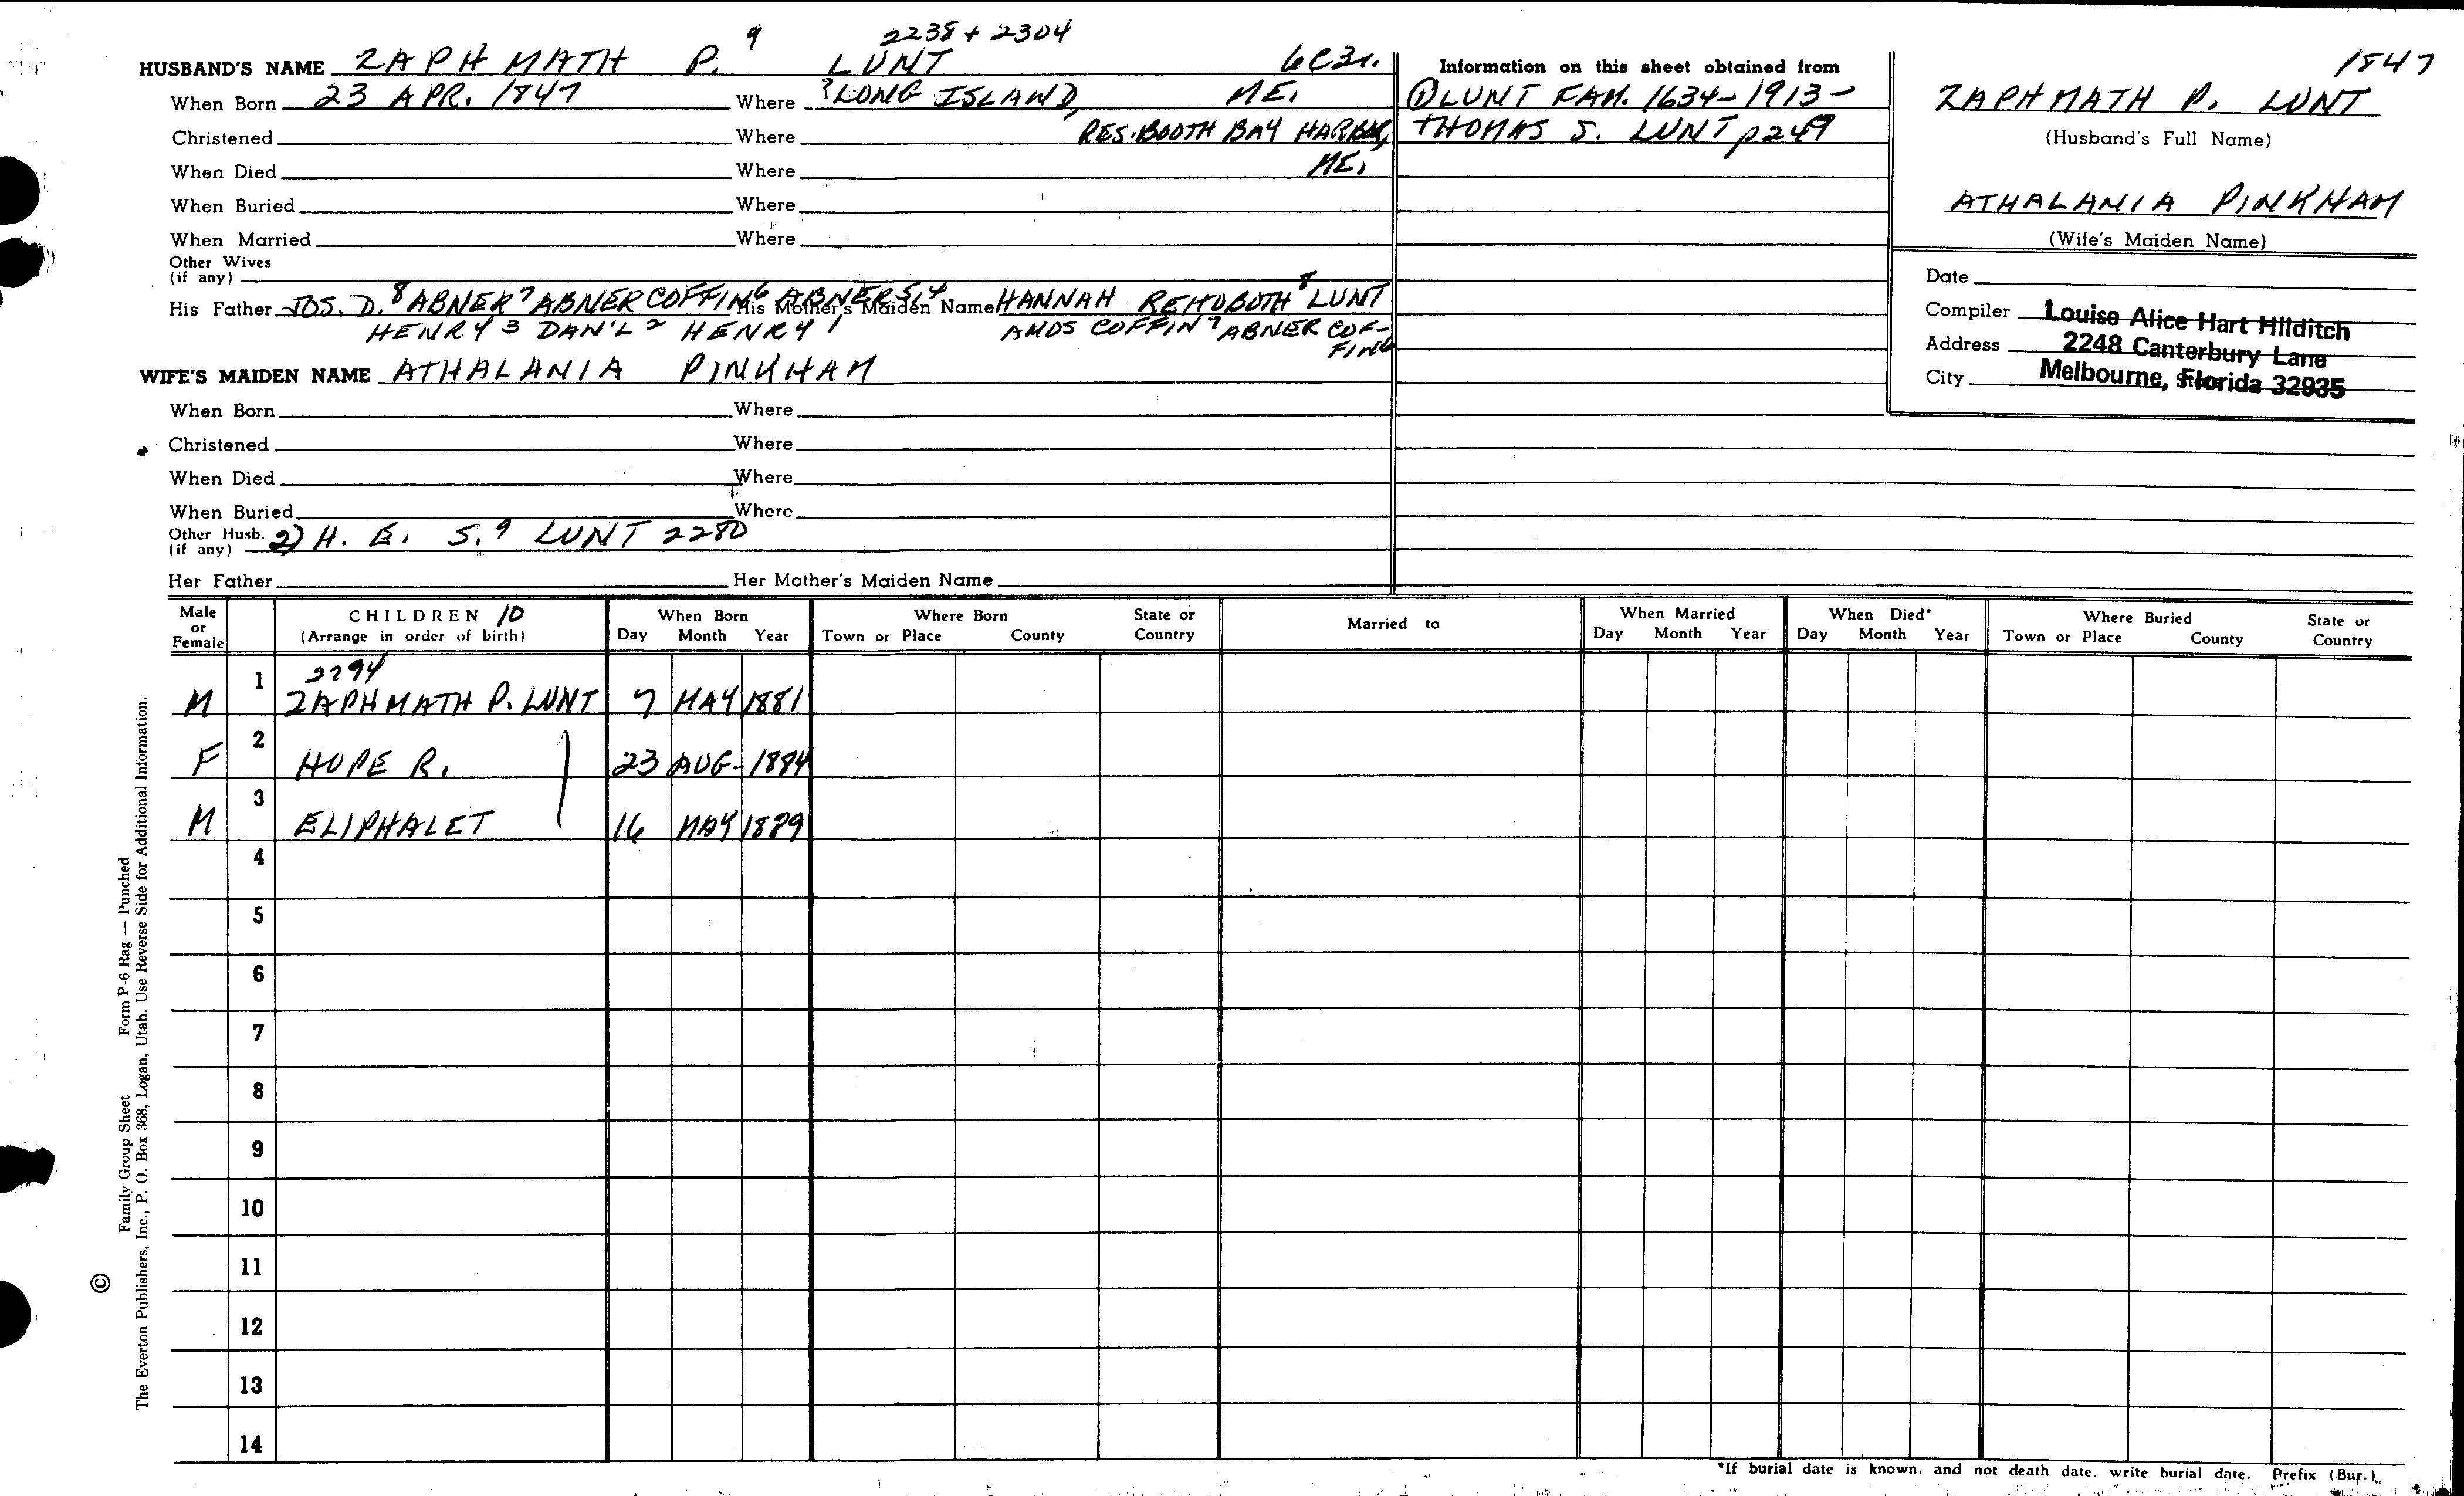 2238 + 2304
HUSBAND'S NAME ZAPHMATH P.9 LUNT 6C31.
When Born 23 APR. 1847 Where ?LONG ISLAND, ME.
Christened Where RES. BOOTH BAY HARBOR,
When Died Where ME.
When Buried Where
When Married Where
Other Wives
(if any)
His Father JOS. D.8 ABNER7 ABNER COFFIN6 ABNER5,4 His Mother's Maiden Name HANNAH REHOBOTH8 LUNT
HENRY3 DAN'L2 HENRY1 AMOS COFFIN7 ABNER COF-
FIN6
WIFE'S MAIDEN NAME ATHALANIA PINKHAM
When Born Where
Christened Where
When Died Where
When Buried Where
Other Husb.
(if any) 2) H. E. S.9 LUNT 2280
Her Father Her Mother's Maiden Name
Information on this sheet obtained from
① LUNT FAM. 1634-1913-
THOMAS S. LUNT p249
1847
ZAPHMATH P. LUNT
(Husband's Full Name)
ATHALANIA PINKHAM
(Wife's Maiden Name)
Date
Compiler Louise Alice Hart Hilditch
Address 2248 Canterbury Lane
City Melbourne, Florida 32935
Male or Female CHILDREN 10 (Arrange in order of birth) When Born Day Month Year Where Born Town or Place County State or Country Married to When Married Day Month Year When Died* Day Month Year Where Buried Town or Place County State or Country
2294
M 1 ZAPHMATH P. LUNT 7 MAY 1881
F 2 HOPE R. 23 AUG. 1884
M 3 ELIPHALET 16 MAY 1889
4
5
6
7
8
9
10
11
12
13
14
*If burial date is known, and not death date, write burial date. Prefix (Bur.).
Family Group Sheet Form P-6 Rag — Punched
© The Everton Publishers, Inc., P. O. Box 368, Logan, Utah. Use Reverse Side for Additional Information.